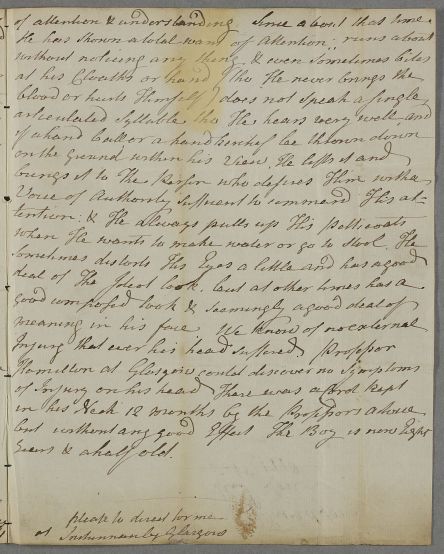 of attention & understanding Since about that time
He has shown a total want of attention: runs about
without noticing any thing & even sometimes bites
at his Cloaths or hand (tho' He never brings the
blood or hurts Himself) does not speak a single
articulated Syllable tho He hears very well and
if a hand ball or a handkerchief be thrown down
on the ground within his view, He lifts it and
brings it to the Person who desires Him with a
Voice of Authority sufficient to command His at-
tention: & He always pulls up His petticoats
when He wants to make water or go to stool. He
sometimes distorts His Eyes a little and has a good
deal of The Ideot look, but at other times has a
good composed look & seemingly a good deal of
meaning in his face We know of no external
Injury that ever his head suffered Professor
Hamilton at Glasgow could discover no Symptoms
of Injury on his head There was a cord kept
in his Neck 12 months by the Professors advice
but without any good Effect The Boy is now Eight
years & a half old.
please to direct for me
at by Glasgow